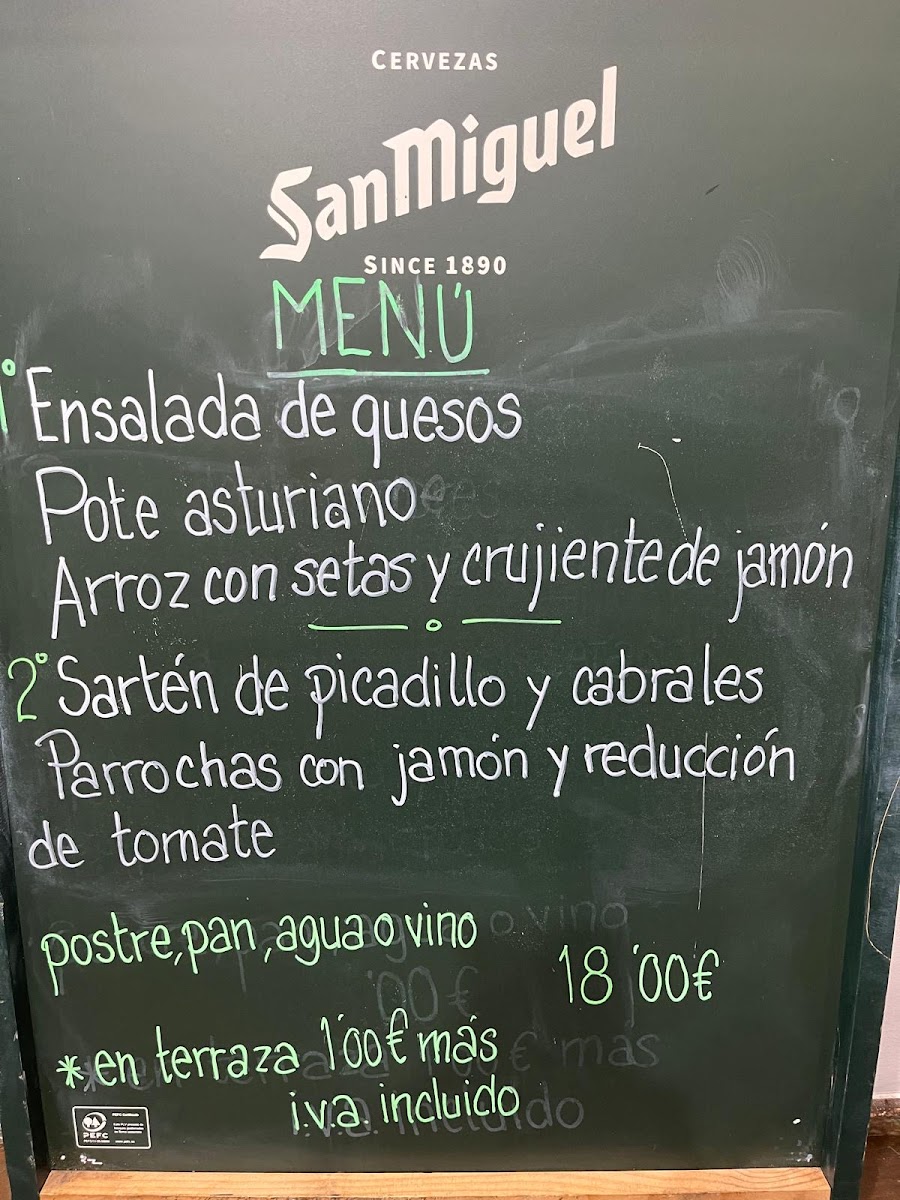 CERVEZAS
SanMiguel
SINCE 1890
MENÚ
1º Ensalada de quesos
Pote asturiano
Arroz con setas y crujiente de jamón
2º Sartén de picadillo y cabrales
Parrochas con jamón y reducción
de tomate
postre, pan, agua o vino
18'00€
*en terraza 1'00€ más
i.v.a. incluido
PEFC